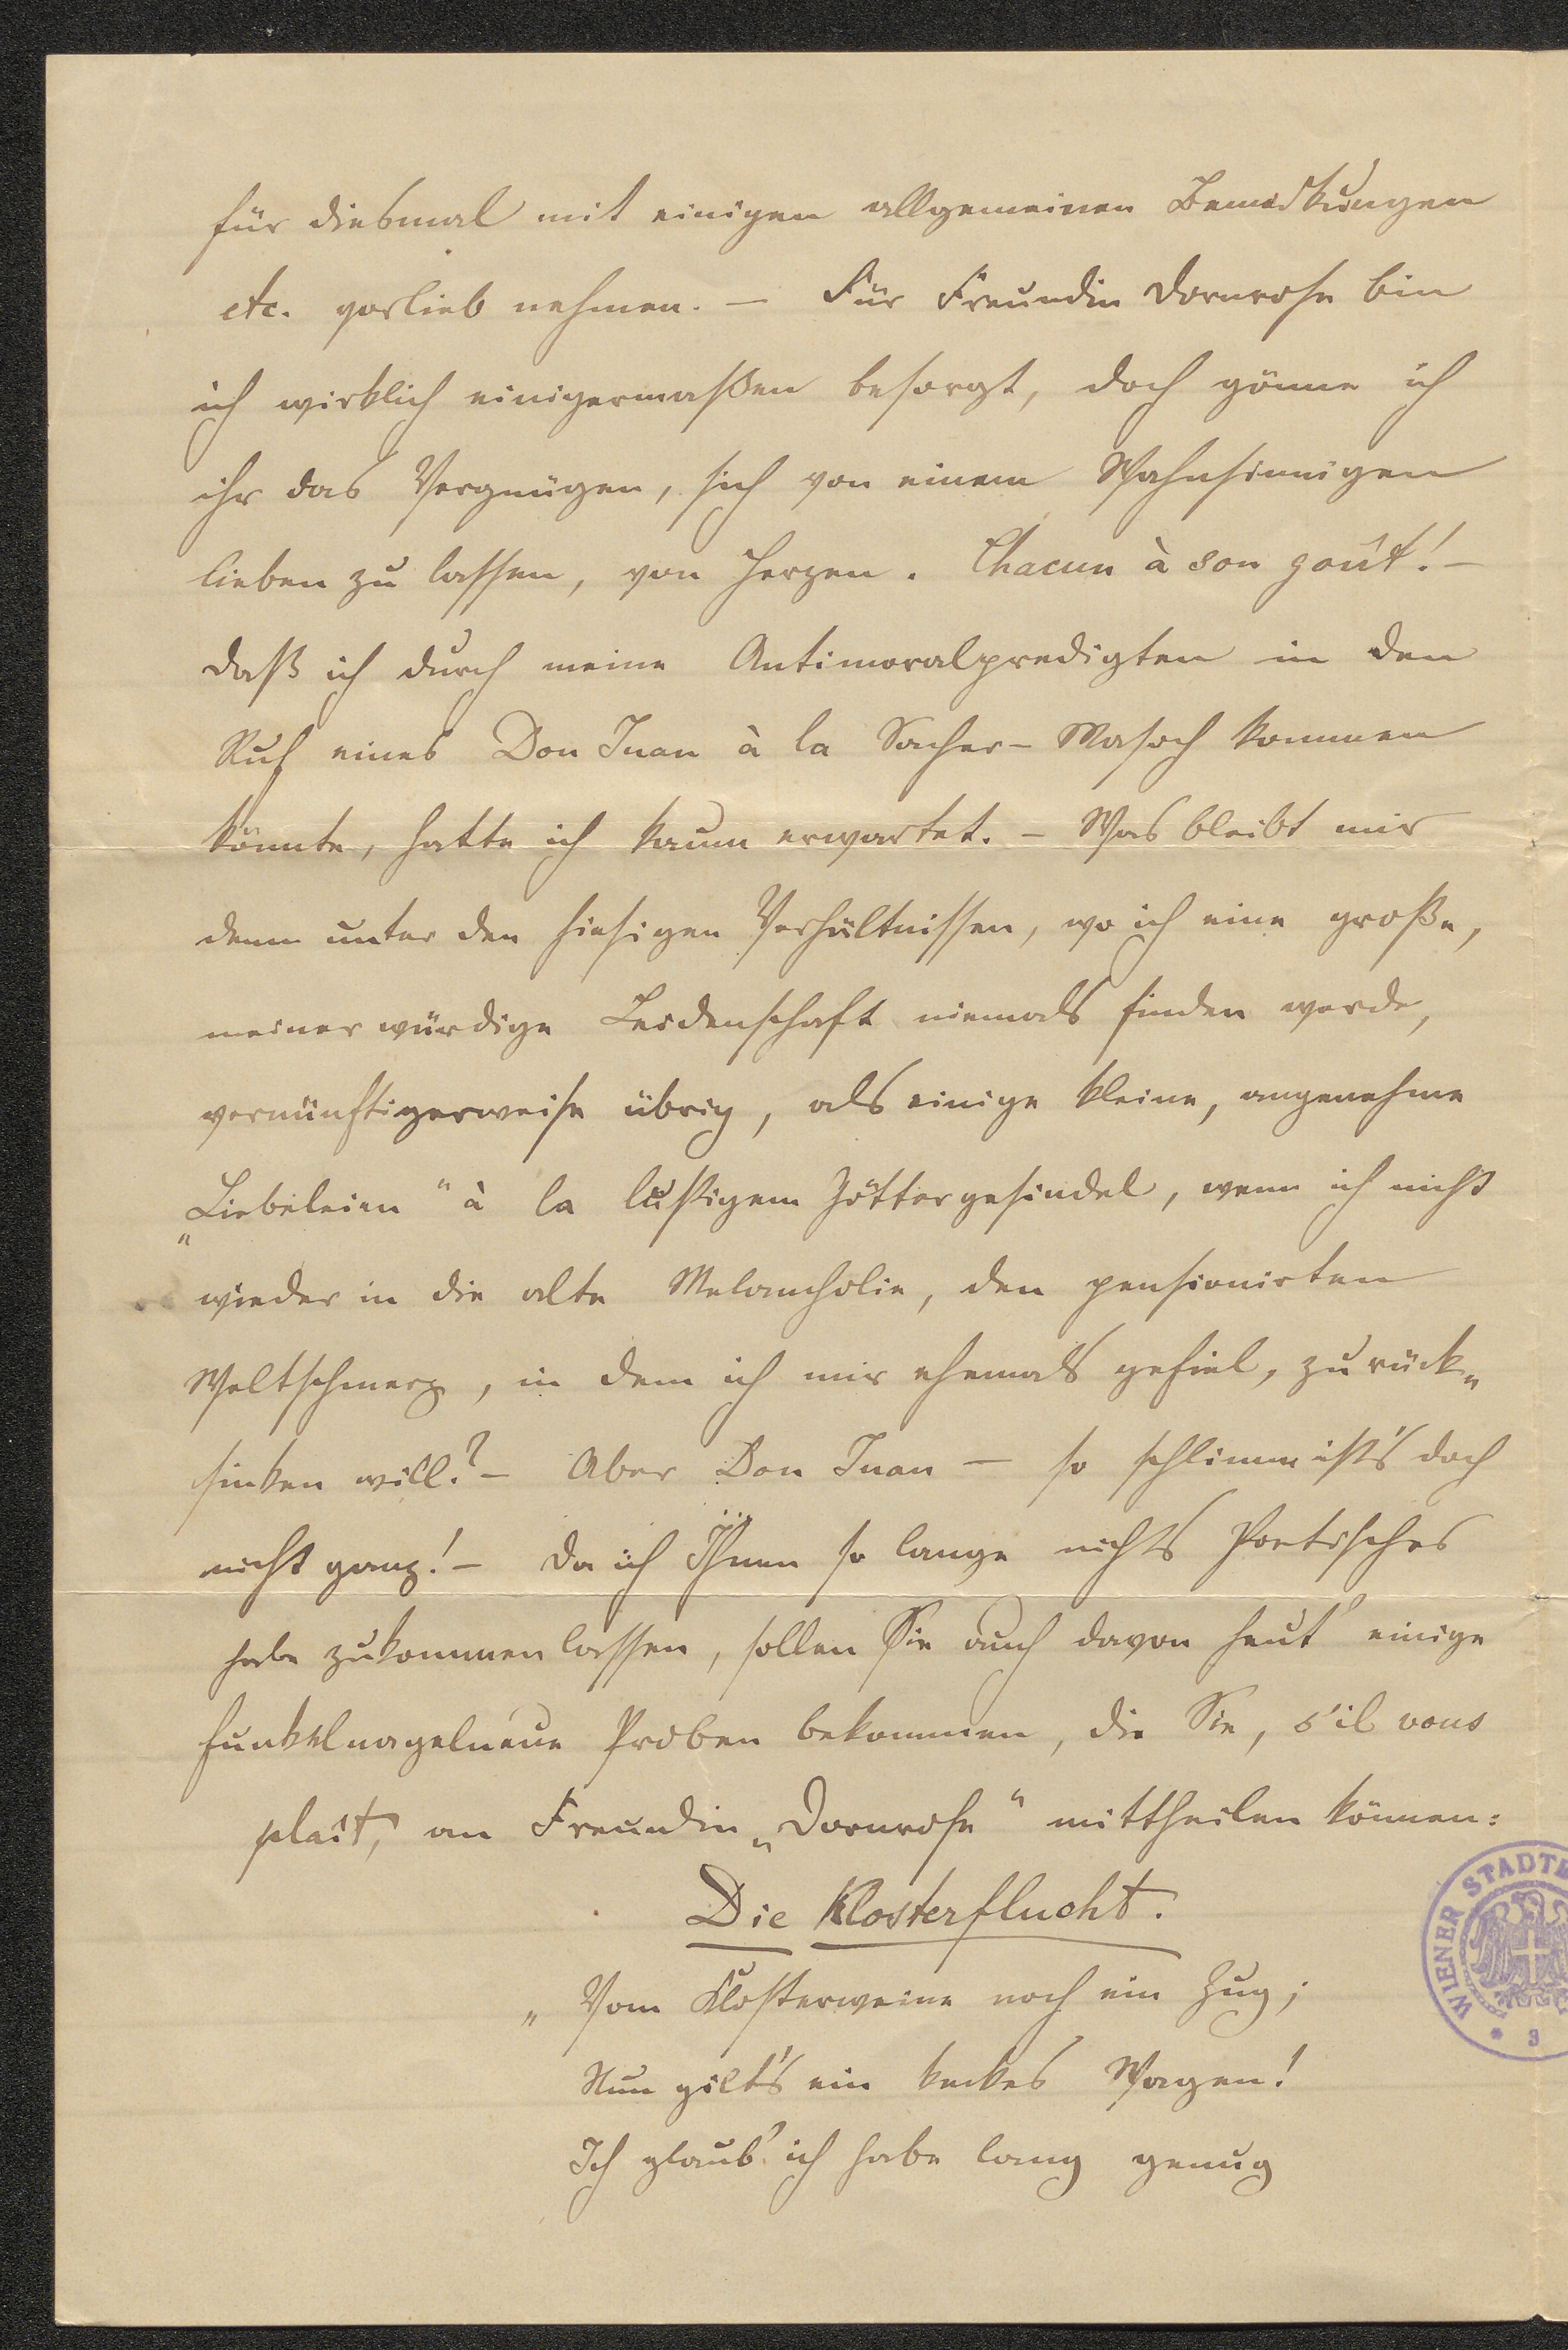 für diesmal mit einigen allgemeinen Bemerkungen
etc. vorlieb nehmen. — Für Freundin Dornrose bin
ich wirklich einigermaßen besorgt, doch gönne ich
ihr das Vergnügen, sich von einem Wahnsinnigen
lieben zu lassen, von Herzen. Chacun à son goût! —
daß ich durch meine Antimoralpredigten in den
Ruf eines Don Juan à la Sacher-Masoch kommen
könnte, hatte ich kaum erwartet. — Was bleibt mir
denn unter den hiesigen Verhältnissen, wo ich eine große,
meiner würdige Leidenschaft niemals finden werde,
vernünftigerweise übrig, als einige kleine, angenehme
„Liebeleien“ à la lustigem Göttergesindel, wenn ich nicht
wieder in die alte Melancholie, den pensionirten
Weltschmerz, in dem ich mir ehemals gefiel, zurück„
sinken will? — Aber Don Juan — so schlimm ist's doch
nicht ganz! — Da ich Ihnen so lange nichts Poetisches
habe zukommen lassen, sollen Sie auch davon heut' einige
funkelnagelneue Proben bekommen, die Sie, s'il vous
plaît, an Freundin „Dornrose“ mittheilen können:
Die Klosterflucht.
„Vom Klosterweine noch ein Zug;
Nun gilt's ein keckes Wagen!
Ich glaub' ich habe lang genug
WIENER STADT